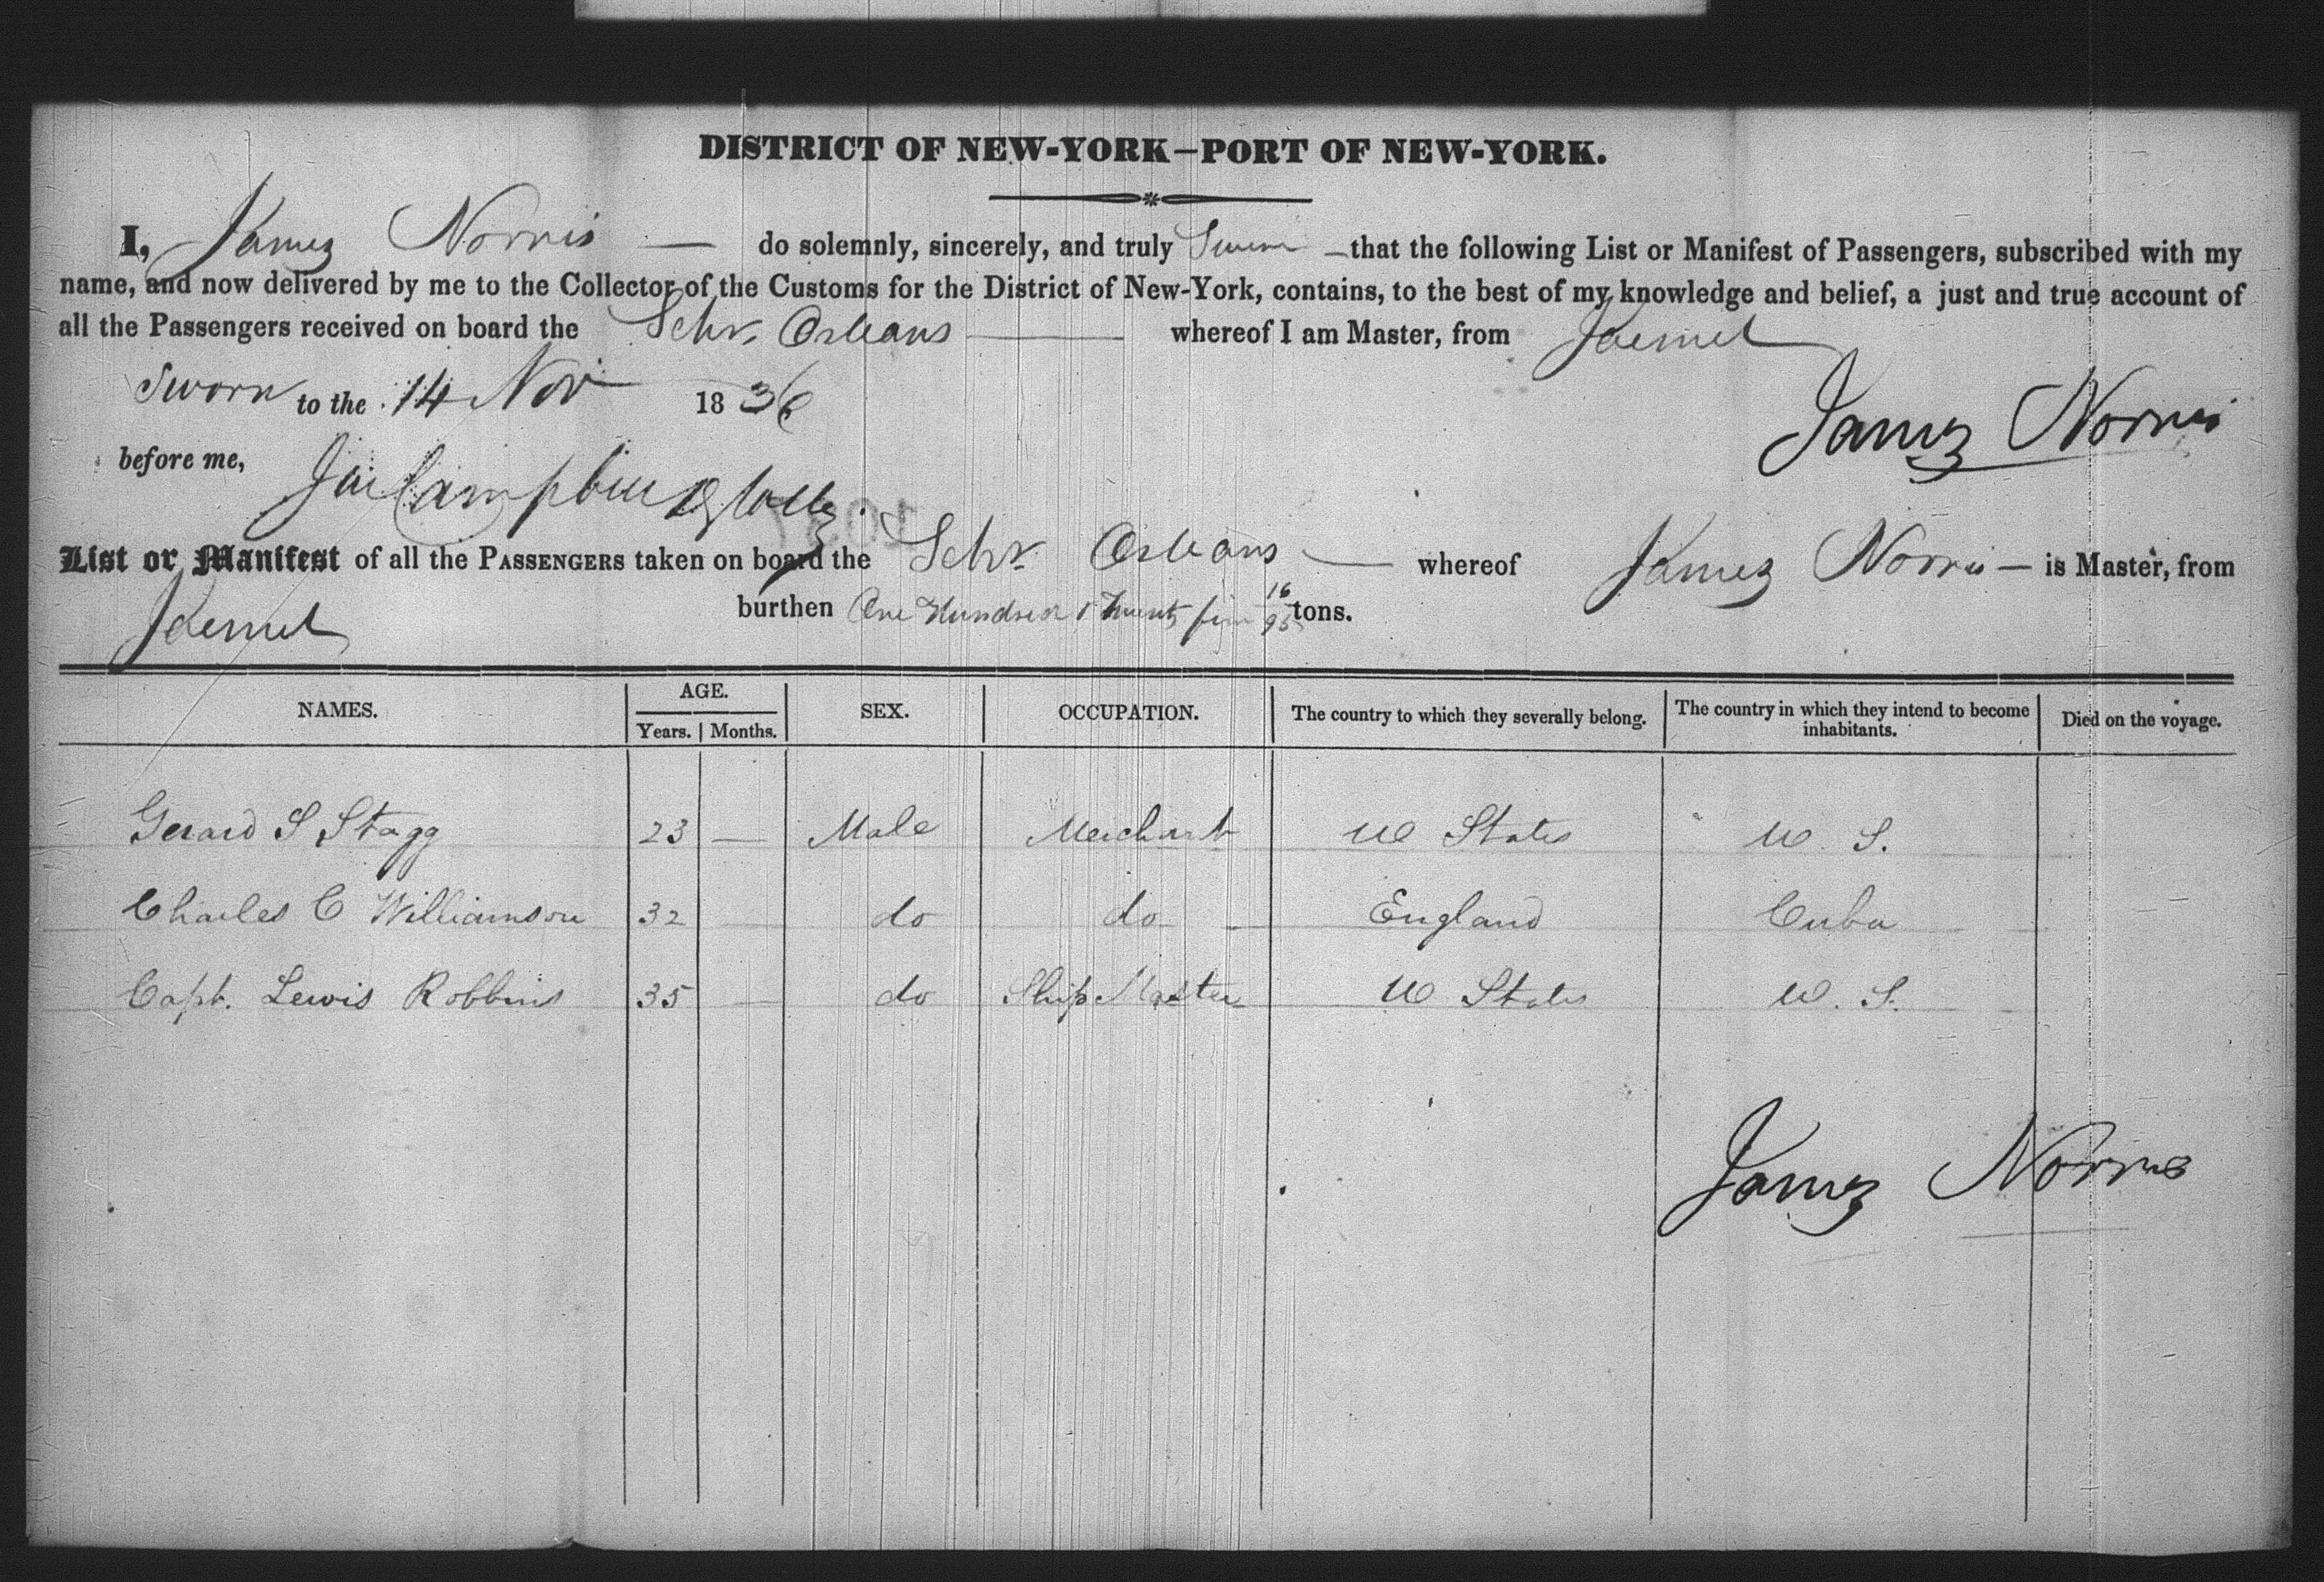 DISTRICT OF NEW-YORK—PORT OF NEW-YORK.
I, James Norris — do solemnly, sincerely, and truly Swear —that the following List or Manifest of Passengers, subscribed with my
name, and now delivered by me to the Collector of the Customs for the District of New-York, contains, to the best of my knowledge and belief, a just and true account of
all the Passengers received on board the Schr. Orleans — whereof I am Master, from Jacmel
Sworn to the 14 Nov 1836
James Norris
before me,
Campbell Dy Collr.
List or Manifest of all the PASSENGERS taken on board the Schr. Orleans — whereof James Norris — is Master, from
Jacmel burthen One Hundred & Twenty five 16/95 tons.
NAMES. AGE. SEX. OCCUPATION. The country to which they severally belong. The country in which they intend to become inhabitants. Died on the voyage.
Years. Months.
Gerard S Stagg 23 — Male Merchant U States U. S.
Charles C Williamson 32 do do England Cuba
Capt. Lewis Robbins 35 do Ship Master U States U. S.
James Norris